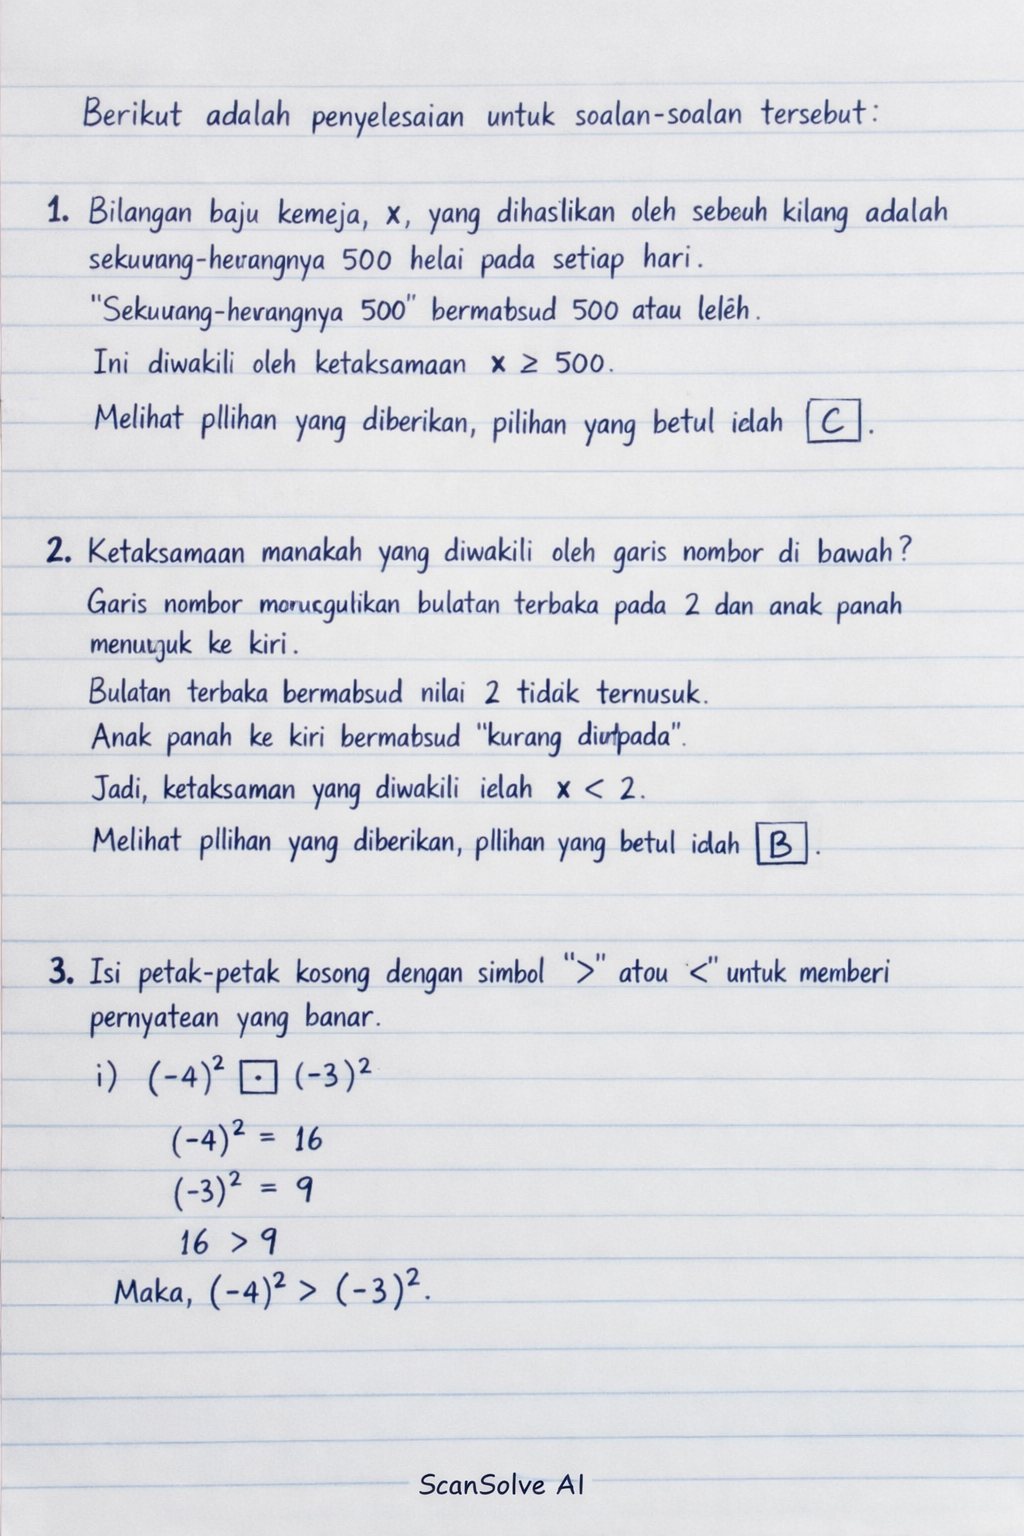 Berikut adalah penyelesaian untuk soalan-soalan tersebut:
1. Bilangan baju kemeja, x, yang dihaslikan oleh sebeuh kilang adalah
sekuuang-herangnya 500 helai pada setiap hari.
"Sekuuang-herangnya 500" bermabsud 500 atau leleh.
Ini diwakili oleh ketaksamaan x ≥ 500.
Melihat pllihan yang diberikan, pilihan yang betul ielah C.
2. Ketaksamaan manakah yang diwakili oleh garis nombor di bawah?
Garis nombor bulatan terbaka pada 2 dan anak panah
ke kiri.
Bulatan terbaka bermabsud nilai 2 tidak ternusuk.
Anak panah ke kiri bermabsud "kurang
Jadi, ketaksaman yang diwakili ielah x < 2.
Melihat pllihan yang diberikan, pllihan yang betul idah B.
3. Isi petak-petak kosong dengan simbol ">" atou <" untuk memberi
pernyatean yang banar.
i) (-4)² ⊡ (-3)²
(-4)² = 16
(-3)² = 9
16 > 9
Maka, (-4)² > (-3)².
ScanSolve AI